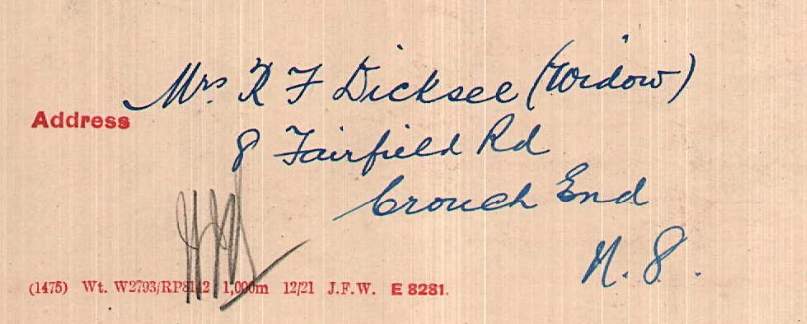 Mrs. R F Dicksee (Widow)
Address
8 Fairfield Rd
Crouch End
N. 8.
(1475) Wt. W2793/RP8142 1,000m 12/21 J.F.W. E 8281.